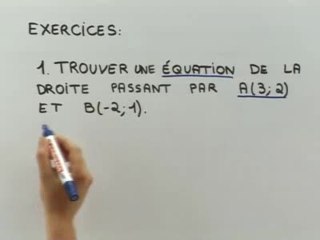 EXERCICES:
1. TROUVER UNE ÉQUATION DE LA
DROITE PASSANT PAR A(3;2)
ET B(-2;1).